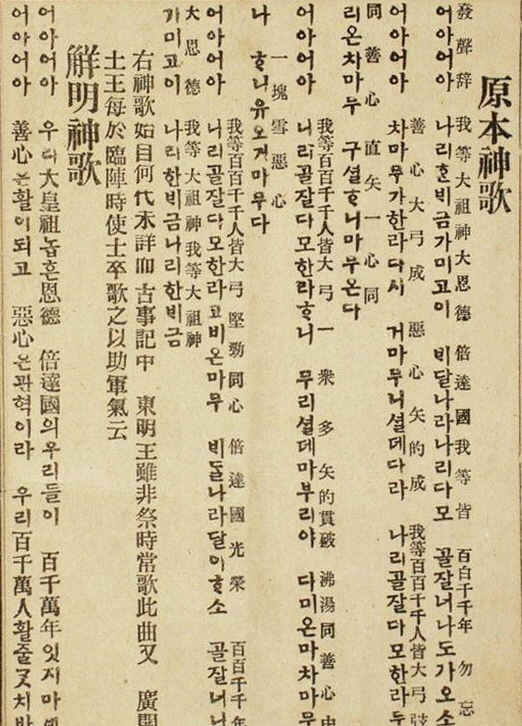 原本神歌
發聲辞 我等大祖神大恩德 倍達國我等皆 百百千千年 勿忘
어아어아 나리ᄒᆞᆫ비금가미고이 비달나라나리다모 골잘너나도가오소
善心大弓成 惡心矢的成 我等百百千千人皆大弓弦
어아어아 차마무가한라다시 거마무니셜데다라 나리골잘다모한라두
同善心 直矢一心同
리온차마무 구셜ᄒᆞ니마무온다
我等百百千千人皆大弓一 衆多矢的貫破 沸湯同善心中
어아어아 나리골잘다모한라ᄒᆞ니 무리셜데마부리아 다미온마차마무
一塊雪惡心
나 ᄒᆞ니유모거마무다
我等百百千千人皆大弓 堅勁同心 倍達國光榮 百百千千年
어아어아 나리골잘다모한라고비온마무 비ᄃᆞᆯ나라달이ᄒᆞ소 골잘너나
大恩德 我等大祖神我等大祖神
가미고이 나리한비금나리한비금
右神歌始自何代未詳而 古事記中 東明王雖非祭時常歌此曲又 廣開
土王每於臨陣時使士卒歌之以助軍氣云
解明神歌
어아어아 우리大皇祖놉흔恩德 倍達國의우리들이 百千萬年잇지마
어아어아 善心은활이되고 惡心은관혁이라 우리百千萬人활줄ᄀᆞᆺ치바